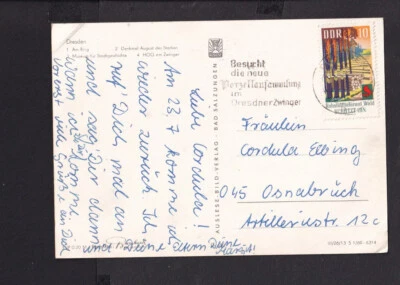 Dresden
1 Am Ring
2 Denkmal August des Starken
4 HOG am Zwinger
AUSLESE-BILD-VERLAG · BAD SALZUNGEN
Liebe Cordula!
Am 23.7 komme ich
wieder zurück. Ich
ruf' Dich mal an
und sag' Dir dann
wann ich komme.
Vorerst viel Grüße an Dich
und Deine
Deine
DDR
10
Besucht
die neue
Porzellansammlung
im
Dresdner Zwinger
Fräulein
Cordula Elbing
045 Osnabrück
Artilleriestr. 12c